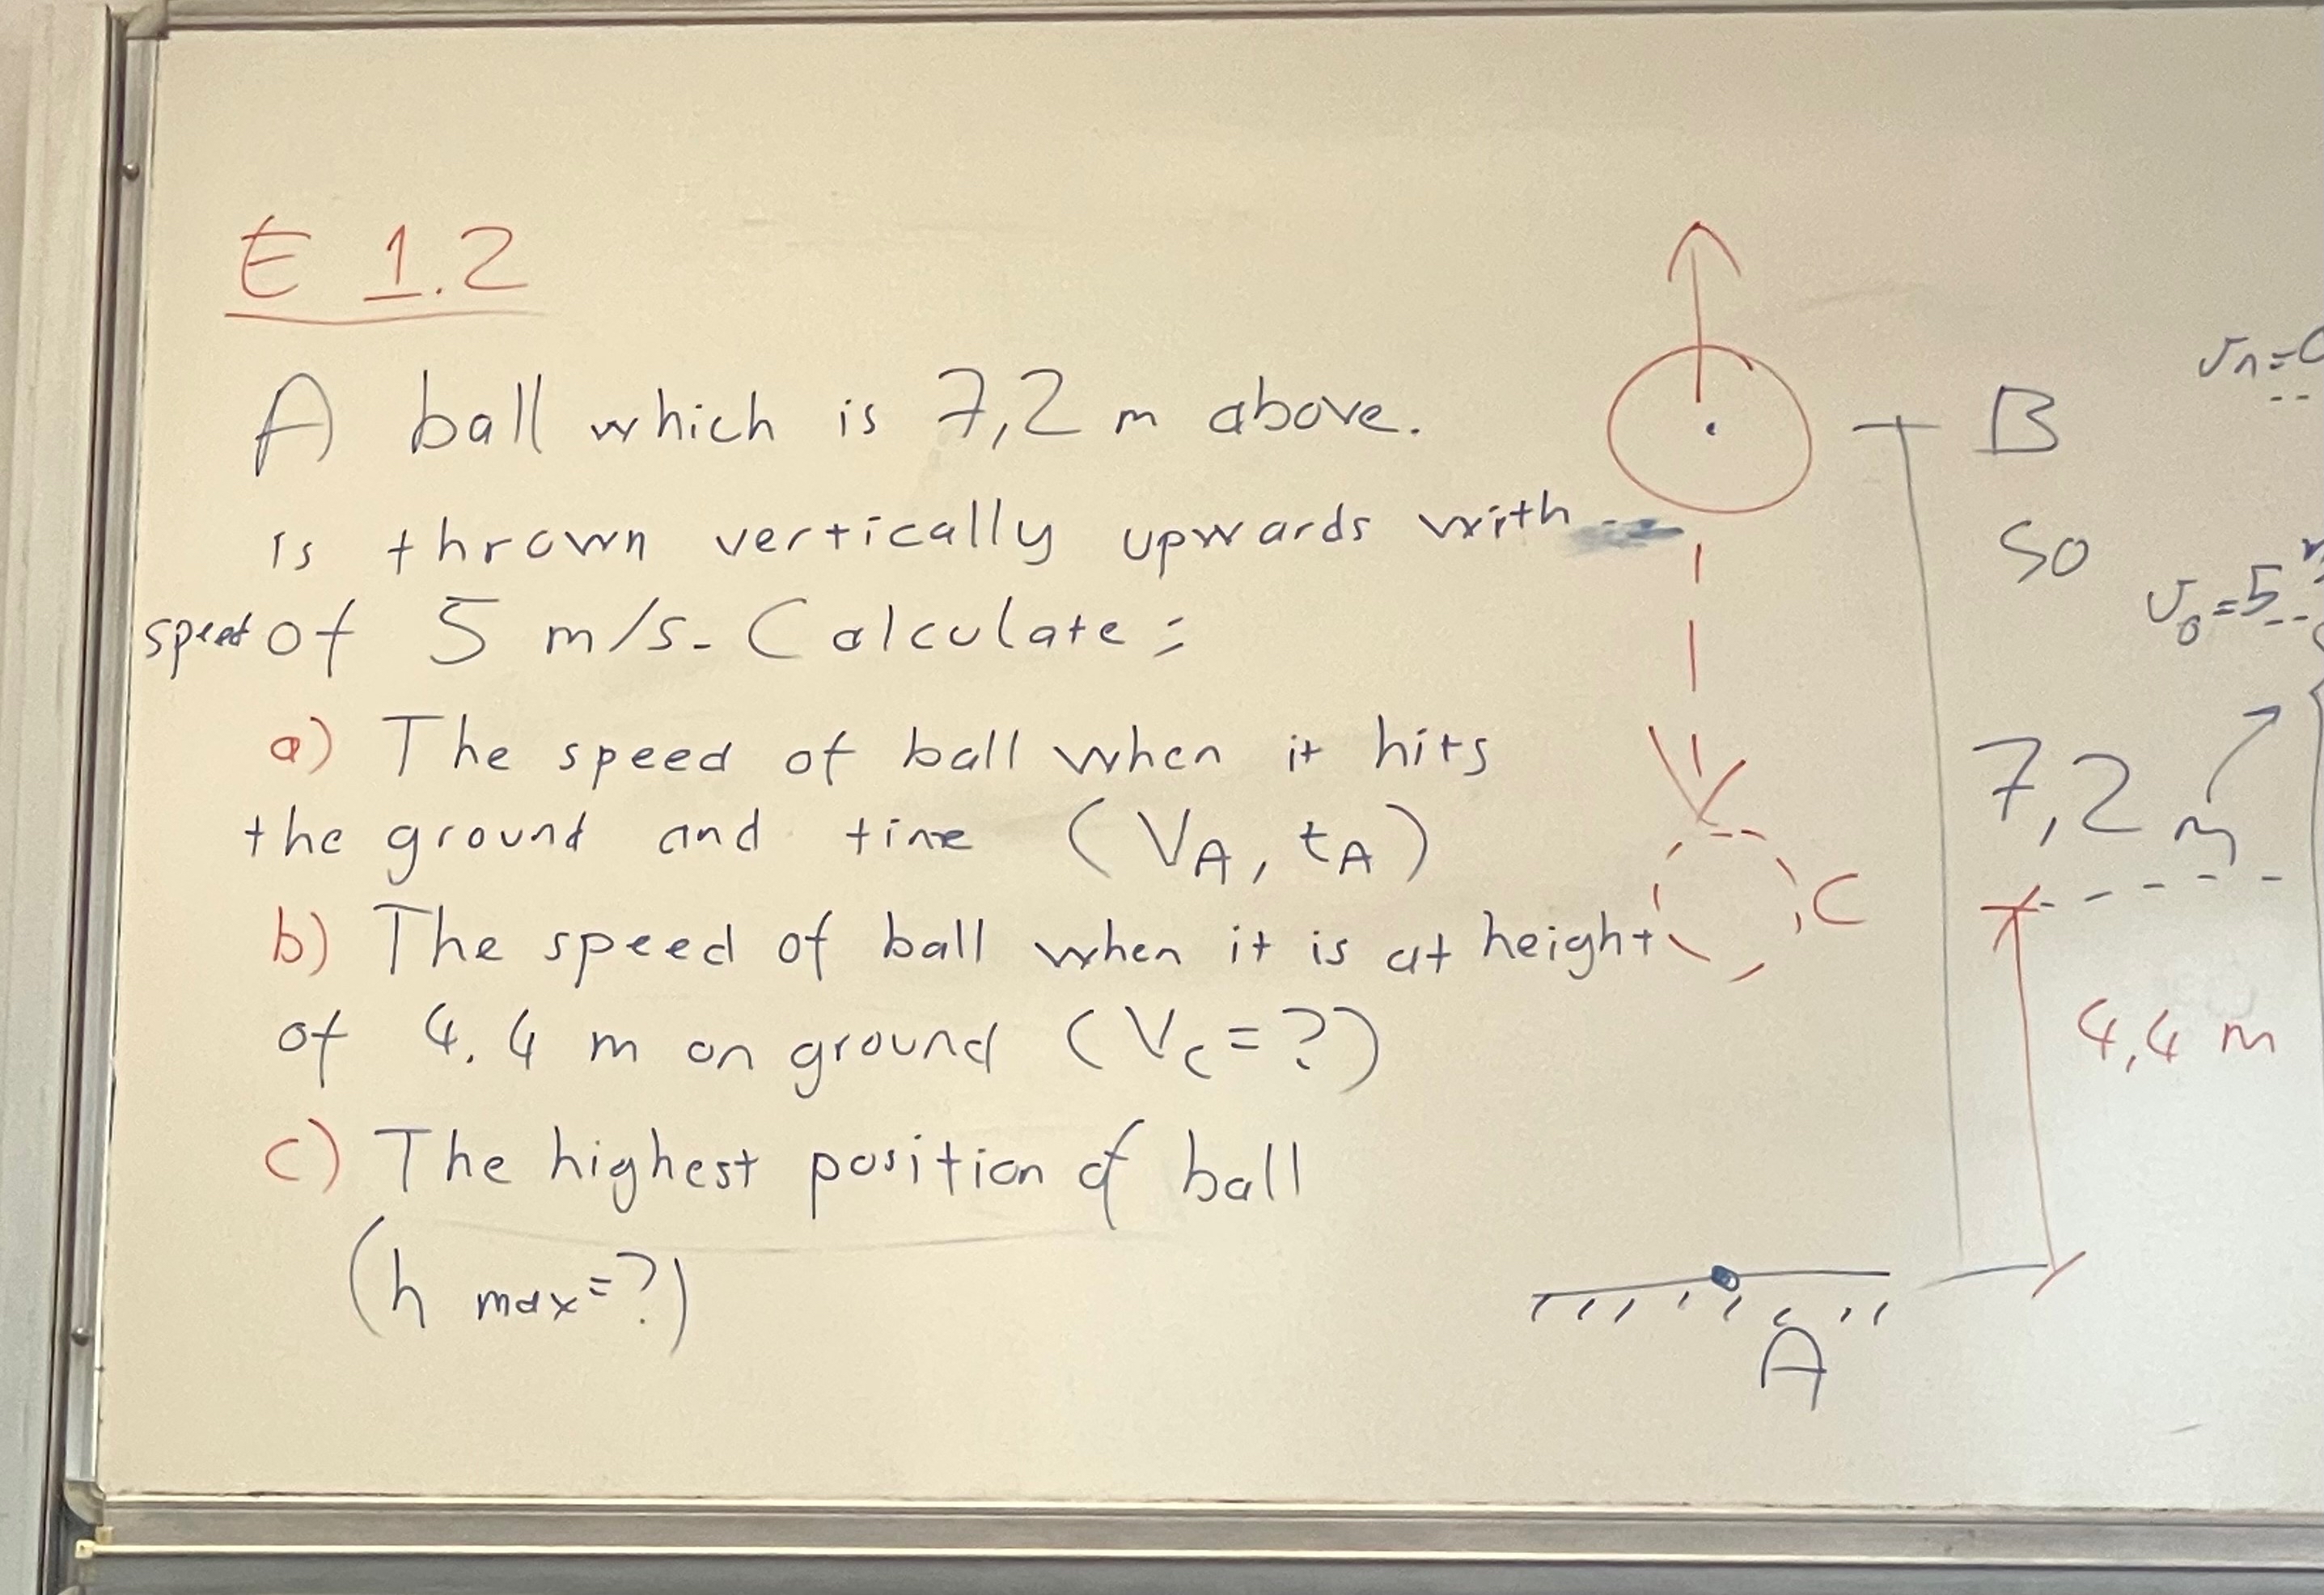 E 1.2
A ball which is 7,2 m above.
is thrown vertically upwards with
speed of 5 m/s. Calculate:
a) The speed of ball when it hits
the ground and time (VA, tA)
b) The speed of ball when it is at height
of 4.4 m on ground (Vc=?)
c) The highest position of ball
(h max=?)
B
so
7,2 m
C
4,4 m
A
v0=5